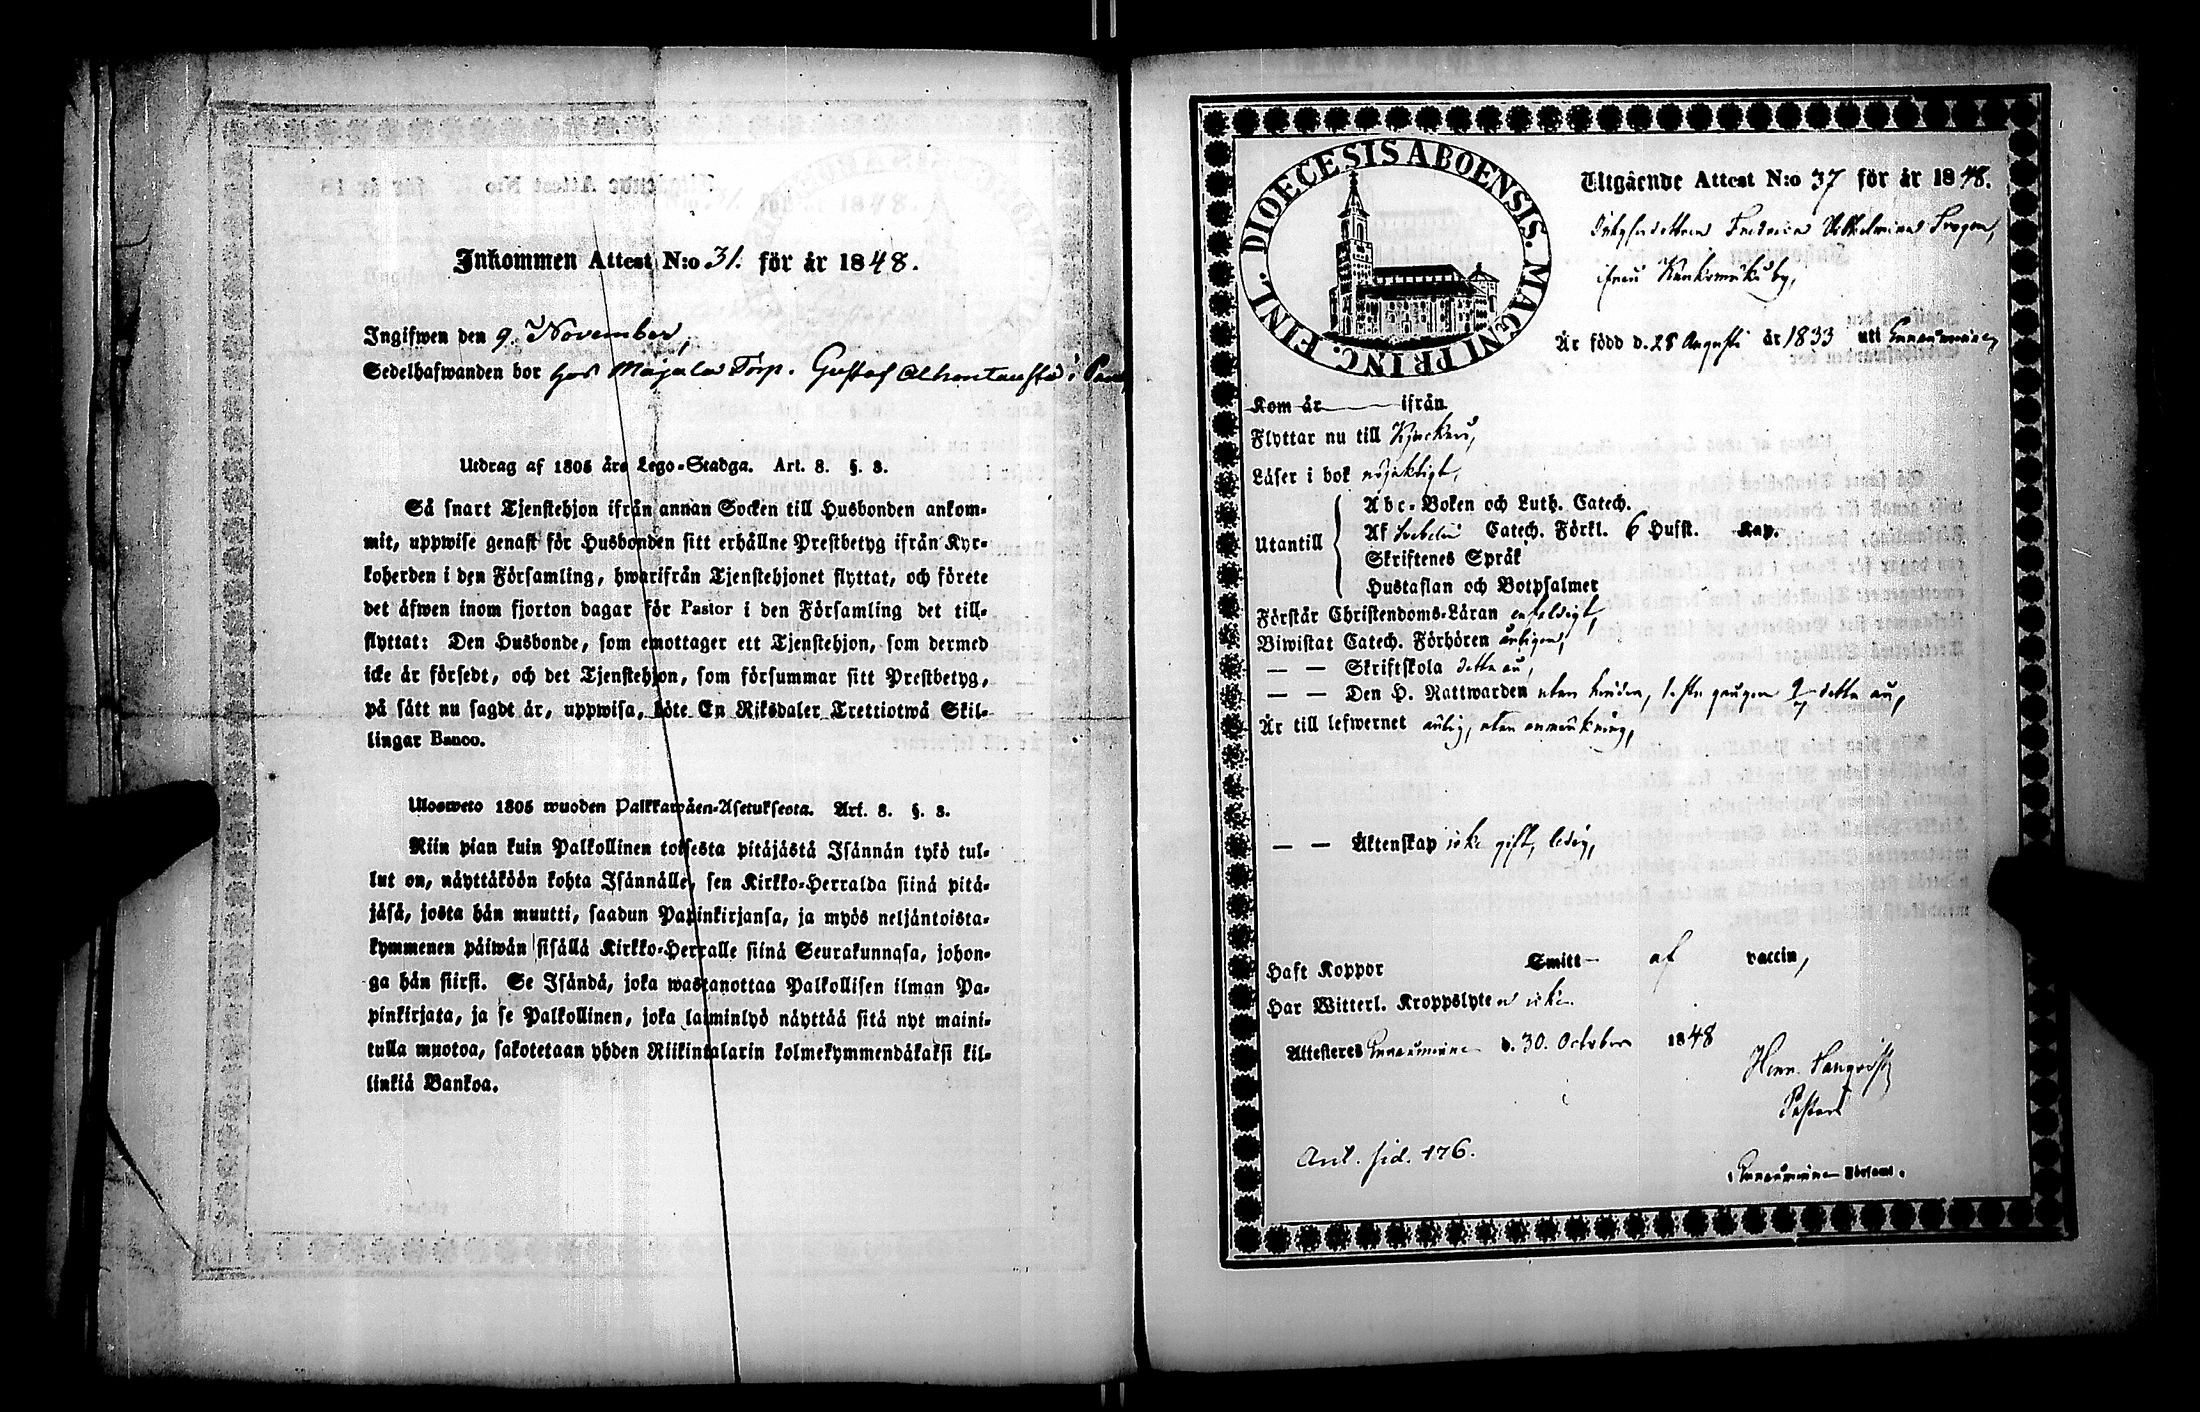 Inkommen Attest N:o 31. för år 1848.
Ingifwen den 9. November,
Sedelhafwanden bor hos Majala Torp. Gustaf i
Utdrag af 1805 års Lego-Stadga. Art. 8. §. 3.
Så snart Tjenstehjon ifrån annan Socken till Husbonden ankom-
mit, uppwise genast för Husbonden sitt erhållne Prestbetyg ifrån Kyr-
koherden i den Församling, hwarifrån Tjenstehjonet flyttat, och förete
det äfwen inom fjorton dagar för Pastor i den Församling det till-
flyttat: Den Husbonde, som emottager ett Tjenstehjon, som dermed
icke är försedt, och det Tjenstehjon, som försummar sitt Prestbetyg,
på sätt nu sagdt är, uppwisa, böte En Riksdaler Trettiotwå Skil-
lingar Banco.
Ulosweto 1805 wuoden Palkkawäen-Asetuksesta. Art. 8. §. 3.
Niin pian kuin Palkollinen toisesta pitäjästä Isännän tykö tul-
lut on, näyttäköön kohta Isännälle, sen Kirkko-Herralda siinä pitä-
jäsä, josta hän muutti, saadun Papinkirjansa, ja myös neljäntoista-
kymmenen päiwän sisällä Kirkko-Herralle siinä Seurakunnasa, johon-
ga hän siirsi. Se Isändä, joka wastanottaa Palkollisen ilman Pa-
pinkirjata, ja se Palkollinen, joka laiminlyö näyttää sitä nyt maini-
tulla muotoa, sakotetaan yhden Riikintalarin kolmekymmendäkaksi kil-
linkiä Bankoa.
DIOECESIS ABOENSIS. MAGNI PRINC. FINL.
Utgående Attest N:o 37 för år 1848.
Fredrica Wilhelmina
ifrån by,
Är född d. 28 Augusti år 1833 uti
Kom år ifrån
Flyttar nu till
Läser i bok nöjaktigt,
Utantill
Abc-Boken och Luth. Catech.
Af Svebelii Catech. Förkl. 6 Hufst. Kap.
Skriftenes Språk
Hustaflan och Botpsalmer
Förstår Christendoms-Läran enfaldigt,
Biwistat Catech. Förhören årligen,
— — Skriftskola detta år,
— — Den H. Nattwarden utan hinder, sista gången detta år,
Är till lefwernet ärlig, utan anmärkning,
— — Äktenskap icke gift, ledig,
Haft Koppor Smitt af vaccin,
Har Witterl. Kroppslyten icke.
Attesteres d. 30. October 1848
Henr.
Pastor
Församl.
Ant. sid. 176.